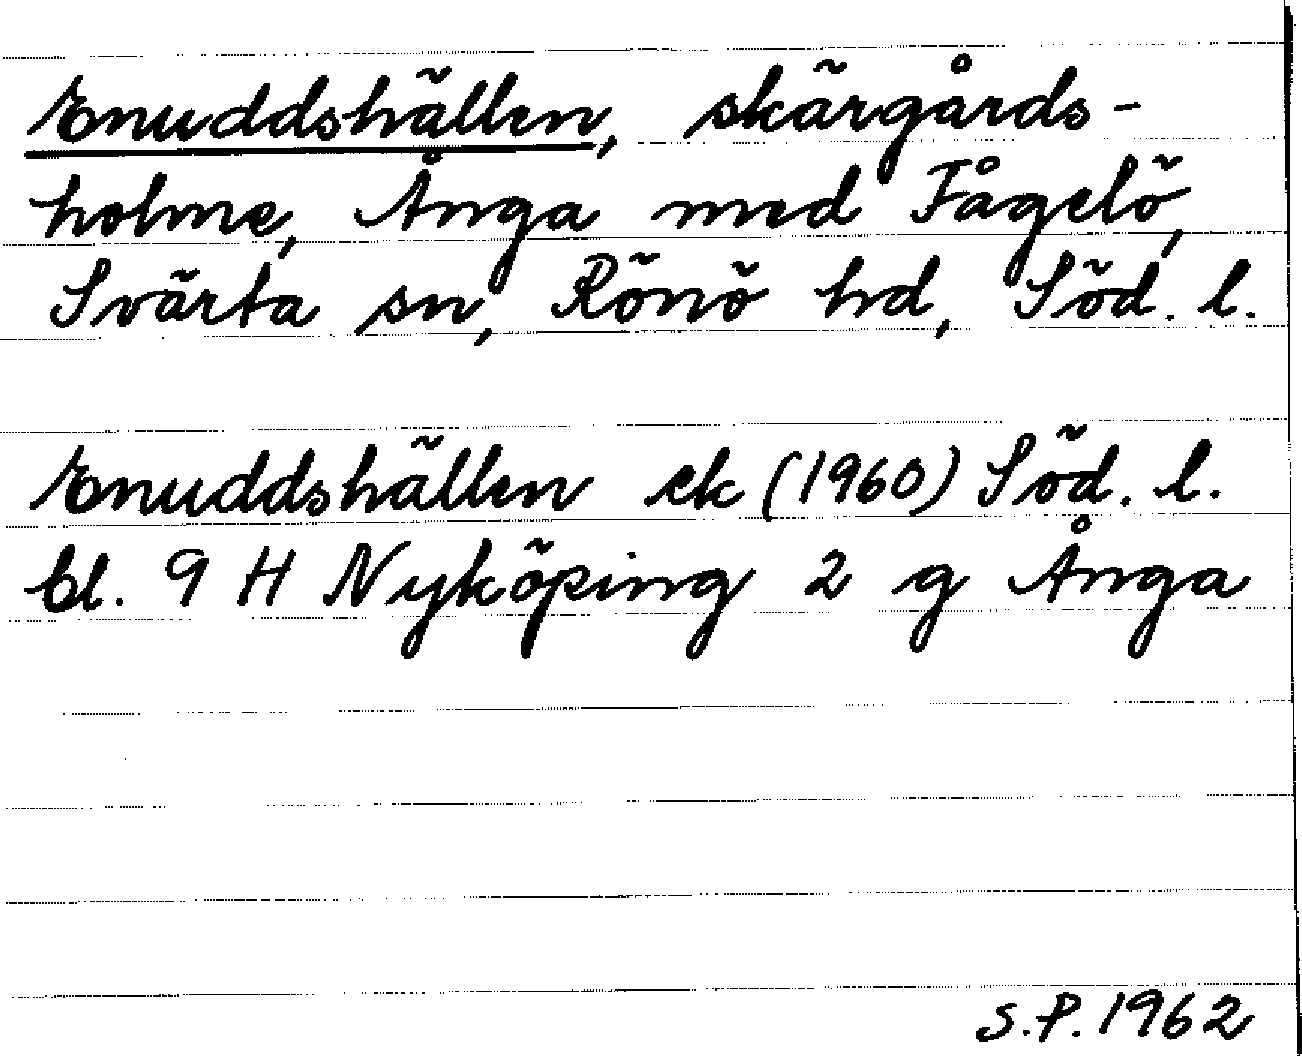 Enuddshällen, skärgårds-
holme, Ånga med Fågelö,
Svärta sn, Rönö hd, Söd. l.
Enuddshällen ek (1960) Söd. l.
bl. 9 H Nyköping 2 g Ånga
S.P. 1962